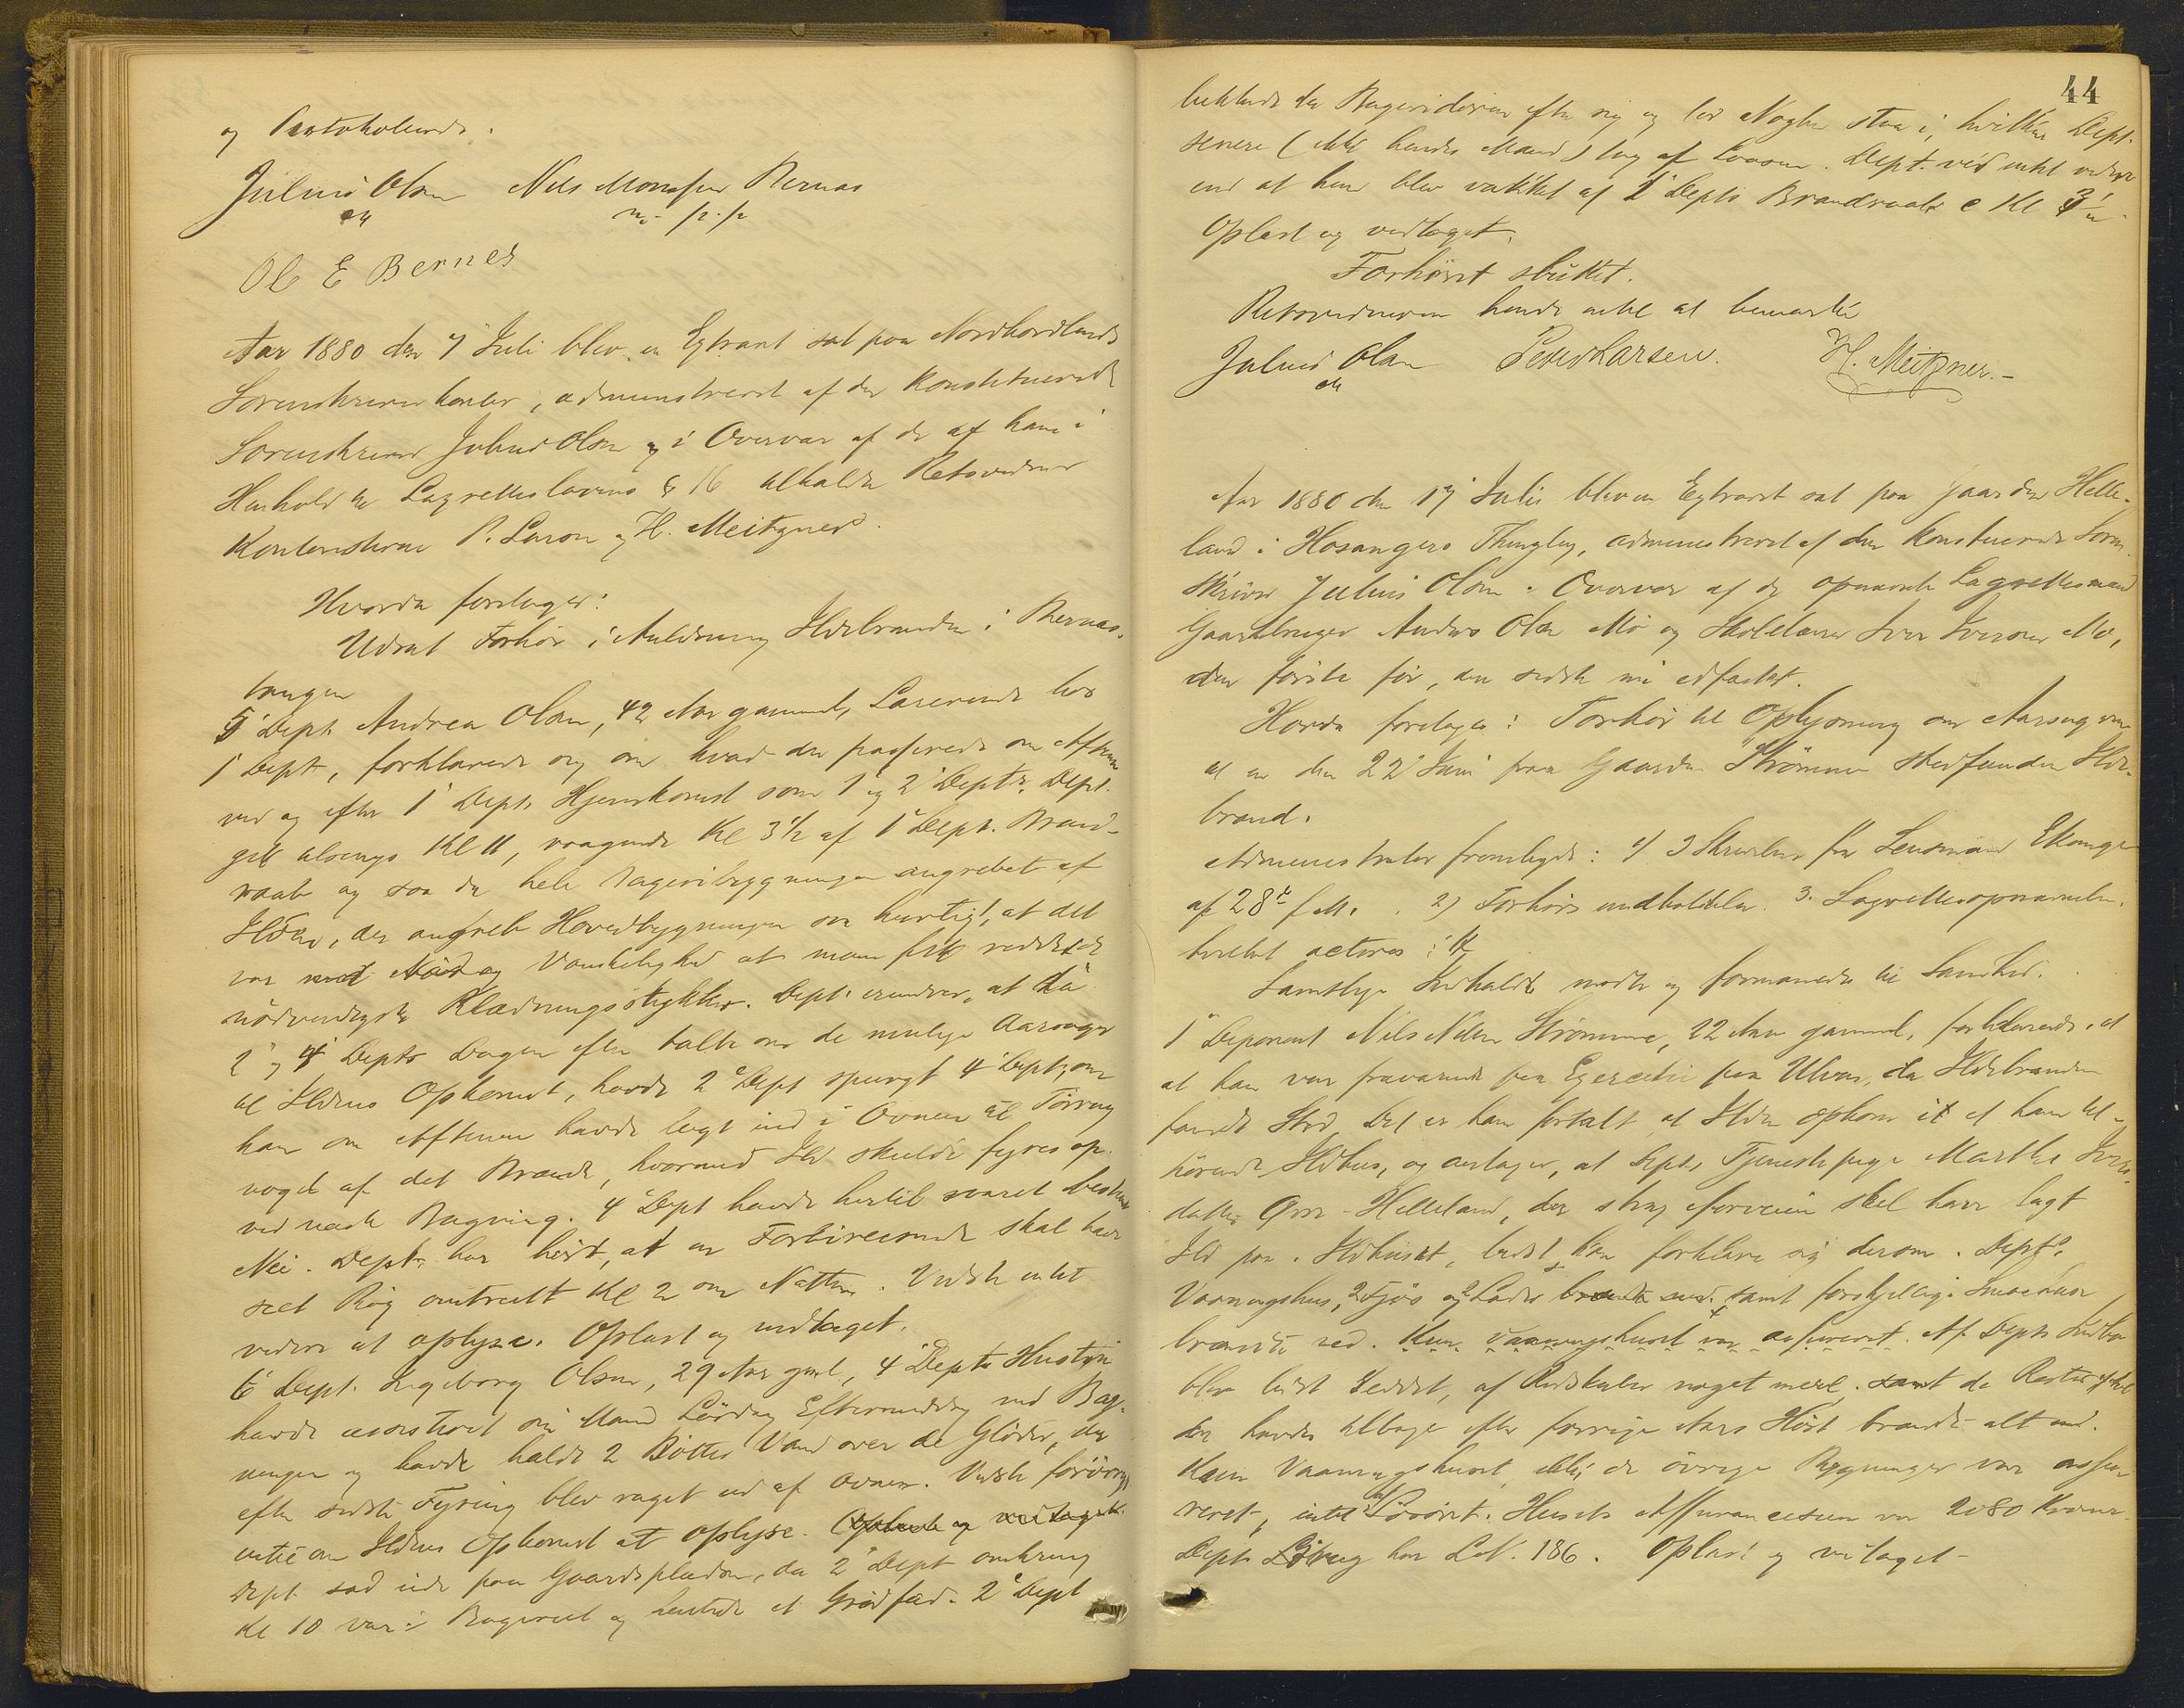 og Protokolerede.
Julius Olsen Nils Monssen Bernas
m. p. p.
Ole E Bernes
Aar 1880 den 7 Juli blev en Extraret sat paa Nordhordlands
Sorenskriverkontor, administreret af den konstituerede
Sorenskriver Julius Olsen og i Overvær af de af ham i
Henhold til Lagretteslovens § 16 tilkaldte Retsvidner
Kontoristerne P. Larsen og H. Meitzner.
Hvorda foretages:
Udsat Forhør i Anledning Ildebranden i Bernes-
vangen
5 Dept. Andrea Olsen, 42 Aar gammel, Logerende hos
1 Dept, forklarede sig om hvad der passerede om Aftenen
ved og efter 1 Depts Hjemkomst som 1 og 2 Dept. Dept.
gik tilsengs Kl 11, vaagnede Kl 3½ af 1 Dept. Brand-
raab og saa da hele Bageribygningen angrebet af
Ilden, der angreb Hovedbygningen saa hurtigt, at det
var med Nød og Vanskelighed at man fik reddet de
nødvendigste Klædningsstykker. Dept. erindrer, at da
2 og 4 Depts Dagen efter talte om de mulige Aarsager
til Ildens Opkomst, havde 2 Dept spurgt 4 Dept, om
han om Aftenen havde lagt ind i Ovnen til Tørring
noget af det Brænde, hvormed Ild skulde fyres op
ved næste Bagning. 4 Dept havde hertil svaret bestemt
Nei. Dept. har hørt, at en Forbireisende skal have
seet Røg omtrent Kl 2 om Natten. Vidste intet
videre at oplyse. Oplæst og vedtaget.
6 Dept. Ingeborg Olsen, 29 Aar gml, 4 Depts Hustru
havde assisteret sin Mand Lørdag Eftermiddag ved Bag-
ningen og havde hældt 2 Bøtter Vand over de Gløder, der
efter sidste Fyring blev raget ud af Ovnen. Vidste forøvrigt
intet om Ildens Opkomst at oplyse. Oplæst og vedtaget.
Dept. sad ude paa Gaardspladsen, da 2 Dept omkring
Kl 10 var i Bageriet og hentede et Grødfad. 2 Dept
44
lukkede da Bageridøren efter sig og lod Nøglen staa i, hvilken Dept.
senere (ikke hendes Mand) tog af Laasen. Dept. véd intet videre
end at hun blev vækket af 1 Depts Brandraab c Kl 3½.
Oplæst og vedtaget.
Forhøret sluttet.
Retsvidnerne havde intet at bemærke
Julius Olsen Peder Larsen. H. Meitzner.
Aar 1880 den 17 Juli blev en Extraret sat paa Gaarden Helle-
land i Hosangers Thinglag, administreret af den konstituerede Soren-
skriver Julius Olsen i Overvær af de opnævnte Lagrettesmænd
Gaardbruger Anders Olsen Mo og Skolelærer Iver Iversen Mo,
den første før, den sidste nu edfæstet.
Hvorda foretages: Forhør til Oplysning om Aarsagerne
til en den 22 Juni paa Gaarden Strømme stedfunden Ilde-
brand.
Administrator fremlagde: 1) 3 Skrivelser fra Lensmand Ekanger
af 28 f. M. 2) Forhørs indkaldelse 3. Lagrettesopnævnelse.
hvilket acteres:
Samtlige Indkaldte mødte og formanedes til Sandhed.
1 Deponent Nils Nilsen Strømme, 22 Aar gammel, forklarede, at
at han var fraværende paa Exercetie paa Ulven, da Ildebranden
fandt Sted. Det er ham fortalt, at Ilden opkom i et ham til-
hørende Ildhus, og antager, at Depts Tjenestepige Marthe Ivers-
datter Øvre-Helleland, der strax forveien skal have lagt
Ild paa i Ildhuset, bedst kan forklare sig derom. Dept.
Vaaningshus, 2 Fjøs og 2 Lader samt forskjellige Smaahuse
brændte ned. Kun Vaaningshuset var assureret. Af Depts Indbo
blev lidt reddet, af Redskaber noget mere. samt de Rester af
der havdes tilbage efter forrige Aars Høst brændte alt ned.
Kun Vaaningshuset, ikke de øvrige Bygninger var assu-
reret, intet af Løsøret. Husets Assurancesum var 2080 Kroner.
Depts Brug har L.N. 186. Oplæst og vedtaget-